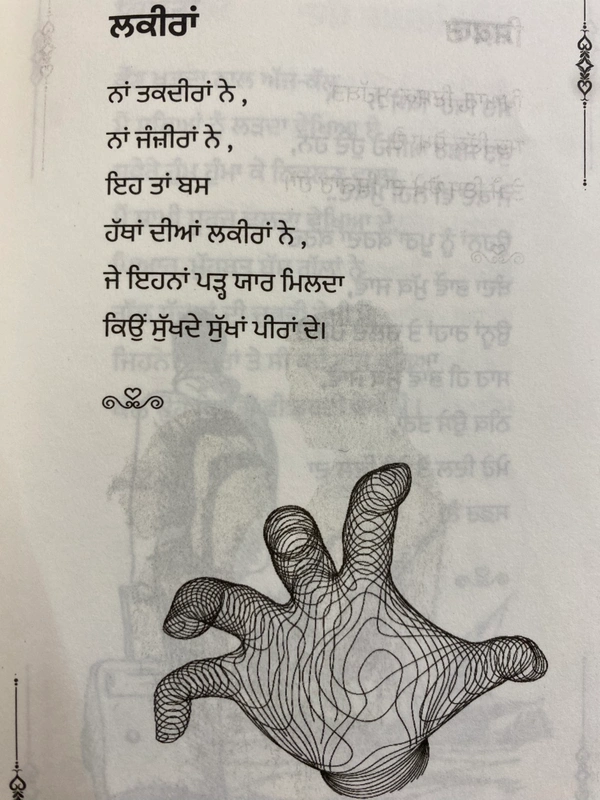 ਲਕੀਰਾਂ
ਨਾਂ ਤਕਦੀਰਾਂ ਨੇ ,
ਨਾਂ ਜੰਜ਼ੀਰਾਂ ਨੇ ,
ਇਹ ਤਾਂ ਬਸ
ਹੱਥਾਂ ਦੀਆਂ ਲਕੀਰਾਂ ਨੇ ,
ਜੇ ਇਹਨਾਂ ਪੜ੍ਹ ਯਾਰ ਮਿਲਦਾ
ਕਿਉਂ ਸੁੱਖਦੇ ਸੁੱਖਾਂ ਪੀਰਾਂ ਦੇ।